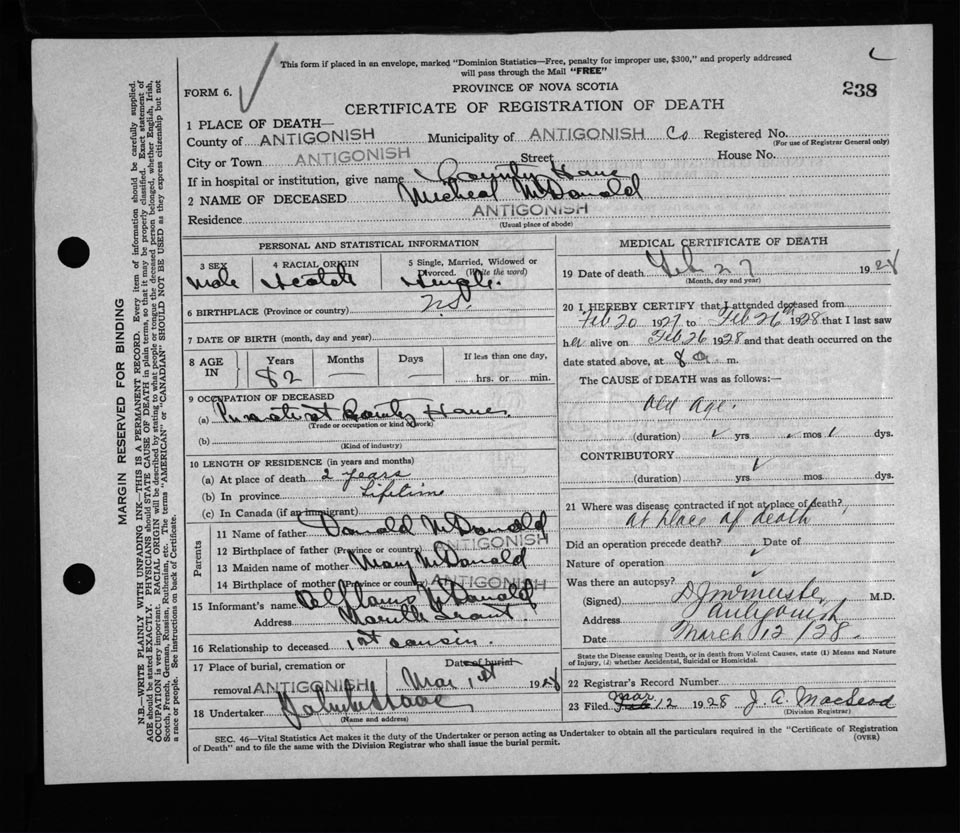 This form if placed in an envelope, marked "Dominion Statistics—Free, penalty for improper use, $300," and properly addressed
will pass through the Mail "FREE"
FORM 6.
PROVINCE OF NOVA SCOTIA
238
CERTIFICATE OF REGISTRATION OF DEATH
1 PLACE OF DEATH—
County of ANTIGONISH Municipality of ANTIGONISH Co Registered No.
(For use of Registrar General only)
City or Town ANTIGONISH Street House No.
If in hospital or institution, give name County Home
2 NAME OF DECEASED Micheal McDonald
Residence ANTIGONISH
(Usual place of abode)
PERSONAL AND STATISTICAL INFORMATION
3 SEX 4 RACIAL ORIGIN 5 Single, Married, Widowed or
Divorced. (Write the word)
Male Scotch Single.
6 BIRTHPLACE (Province or country) N.S.
7 DATE OF BIRTH (month, day and year)
8 AGE IN Years Months Days If less than one day,
82 — hrs. or min.
9 OCCUPATION OF DECEASED
(a) County Home
(Trade or occupation or kind of work)
(b)
(Kind of industry)
10 LENGTH OF RESIDENCE (in years and months)
(a) At place of death 2 years
(b) In province Lifetime
(c) In Canada (if an immigrant)
Parents
11 Name of father Donald McDonald
12 Birthplace of father (Province or country) ANTIGONISH
13 Maiden name of mother Mary McDonald
14 Birthplace of mother (Province or country) ANTIGONISH
15 Informant's name McDonald
Address Grant.
16 Relationship to deceased 1st cousin.
17 Place of burial, cremation or Date of burial
removal ANTIGONISH Mar 1st 1928
18 Undertaker
(Name and address)
MEDICAL CERTIFICATE OF DEATH
19 Date of death Feb 27 1928
(Month, day and year)
20 I HEREBY CERTIFY that I attended deceased from
Feb 20 1927 to Feb 26th 1928 that I last saw
h alive on Feb 26 1928 and that death occurred on the
date stated above, at 8 a m.
The CAUSE of DEATH was as follows:—
Old Age.
(duration) yrs. mos 1 dys.
CONTRIBUTORY
(duration) yrs. mos. dys.
21 Where was disease contracted if not at place of death?
at place of death
Did an operation precede death? Date of
Nature of operation
Was there an autopsy?
(Signed) M.D.
Address Antigonish
Date March 12/28.
State the Disease causing Death, or in death from Violent Causes, state (1) Means and Nature
of Injury, (2) whether Accidental, Suicidal or Homicidal.
22 Registrar's Record Number
23 Filed Mar 12 1928 J. A. MacLeod
(Division Registrar)
SEC. 46—Vital Statistics Act makes it the duty of the Undertaker or person acting as Undertaker to obtain all the particulars required in the "Certificate of Registration
of Death" and to file the same with the Division Registrar who shall issue the burial permit. (OVER)
MARGIN RESERVED FOR BINDING
N.B.—WRITE PLAINLY WITH UNFADING INK—THIS IS A PERMANENT RECORD. Every item of information should be carefully supplied.
AGE should be stated EXACTLY. PHYSICIANS should STATE CAUSE OF DEATH in plain terms, so that it may be properly classified. Exact statement of
OCCUPATION is very important. RACIAL ORIGIN will be described by stating to what people or tongue the deceased person belonged, whether English, Irish,
Scotch, French, German, Russian, Ruthenian, etc. The terms "AMERICAN" or "CANADIAN" SHOULD NOT BE USED as they express citizenship but not
a race or people. See instructions on back of Certificate.